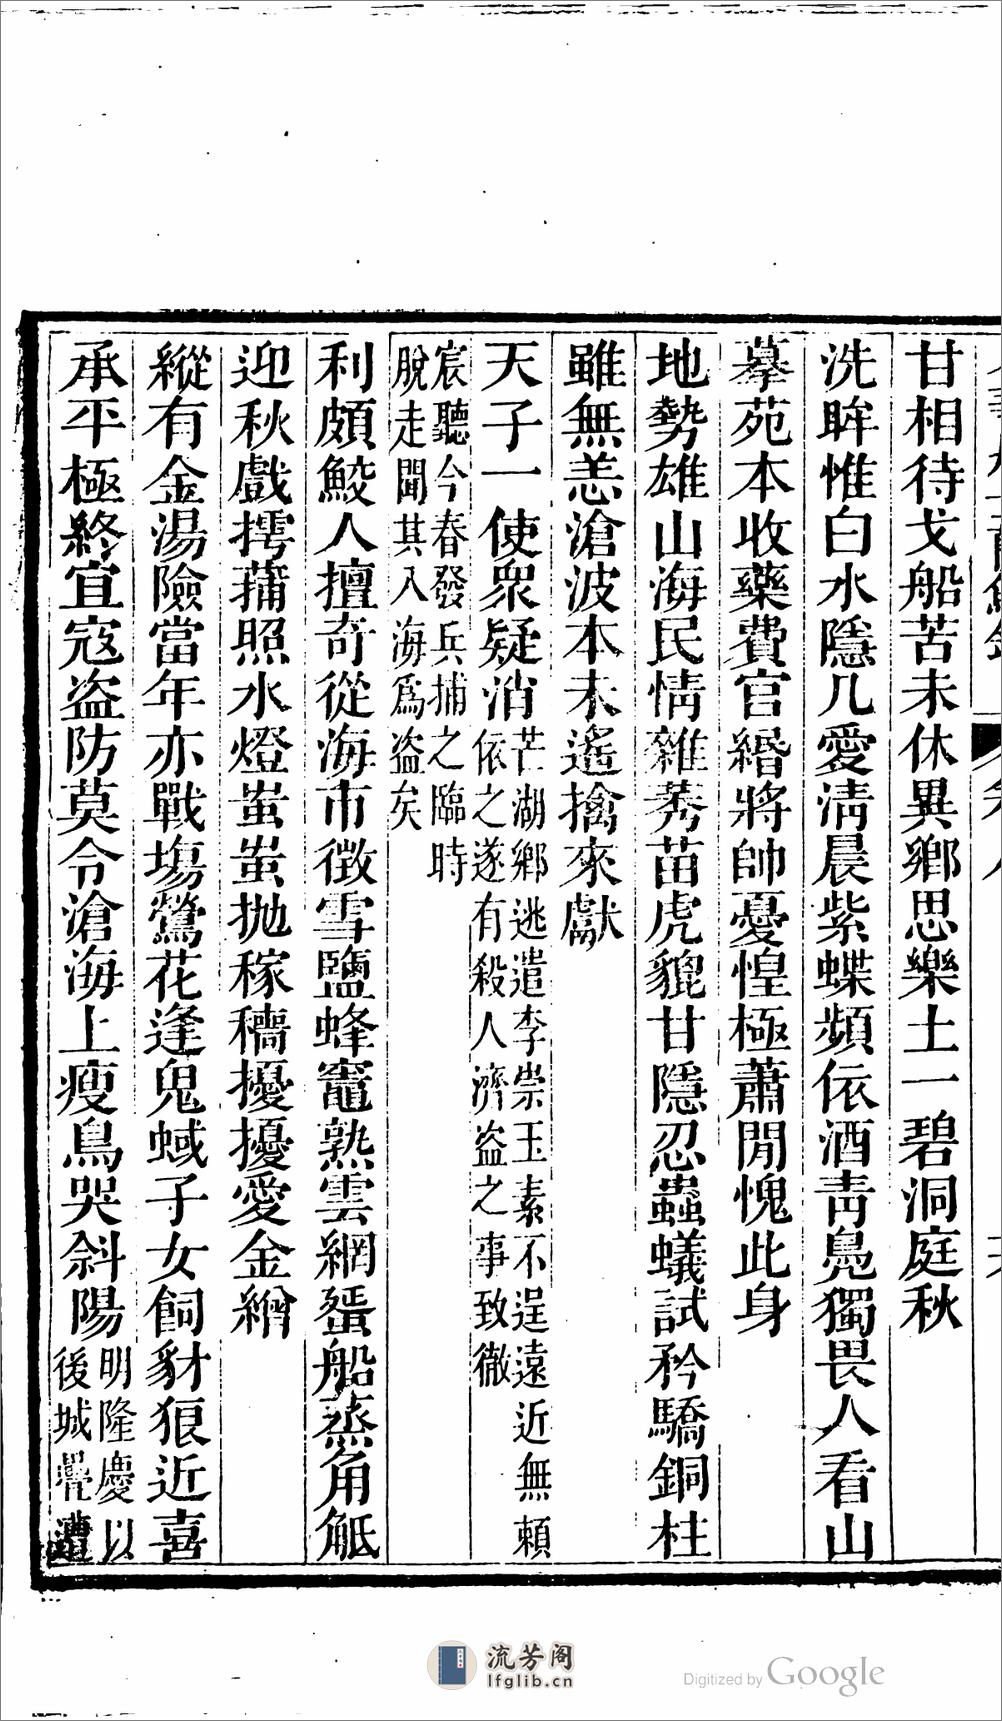 甘相待戈船苦未休異鄉思樂土一碧洞庭秋
洗眸惟白水隱几愛清晨紫蝶頻依酒青鳧獨畏人看山
摹苑本收藥費官緡將帥憂惶極蕭閒愧此身
地勢雄山海民情雜莠苗虎貔甘隱忍蟲蟻試矜驕銅柱
雖無恙滄波本未遙擒來獻
天子一使衆疑消芒湖鄉逃遣李崇玉素不逞遠近無賴
依之遂有殺人濟盜之事致徹
宸聽今春發兵捕之臨時
脫走聞其入海爲盜矣
利頗鮫人擅奇從海市徵雪鹽蜂竈熟雲網蜑船蒸角觝
迎秋戲摴蒱照水燈蚩蚩抛稼穡擾擾愛金繒
縱有金湯險當年亦戰塲鶯花逢鬼蜮子女飼豺狼近喜
承平極終宜寇盜防莫令滄海上瘦鳥哭斜陽明隆慶以
後城疊遭
流芳阁
lfglib.cn
Digitized by Google